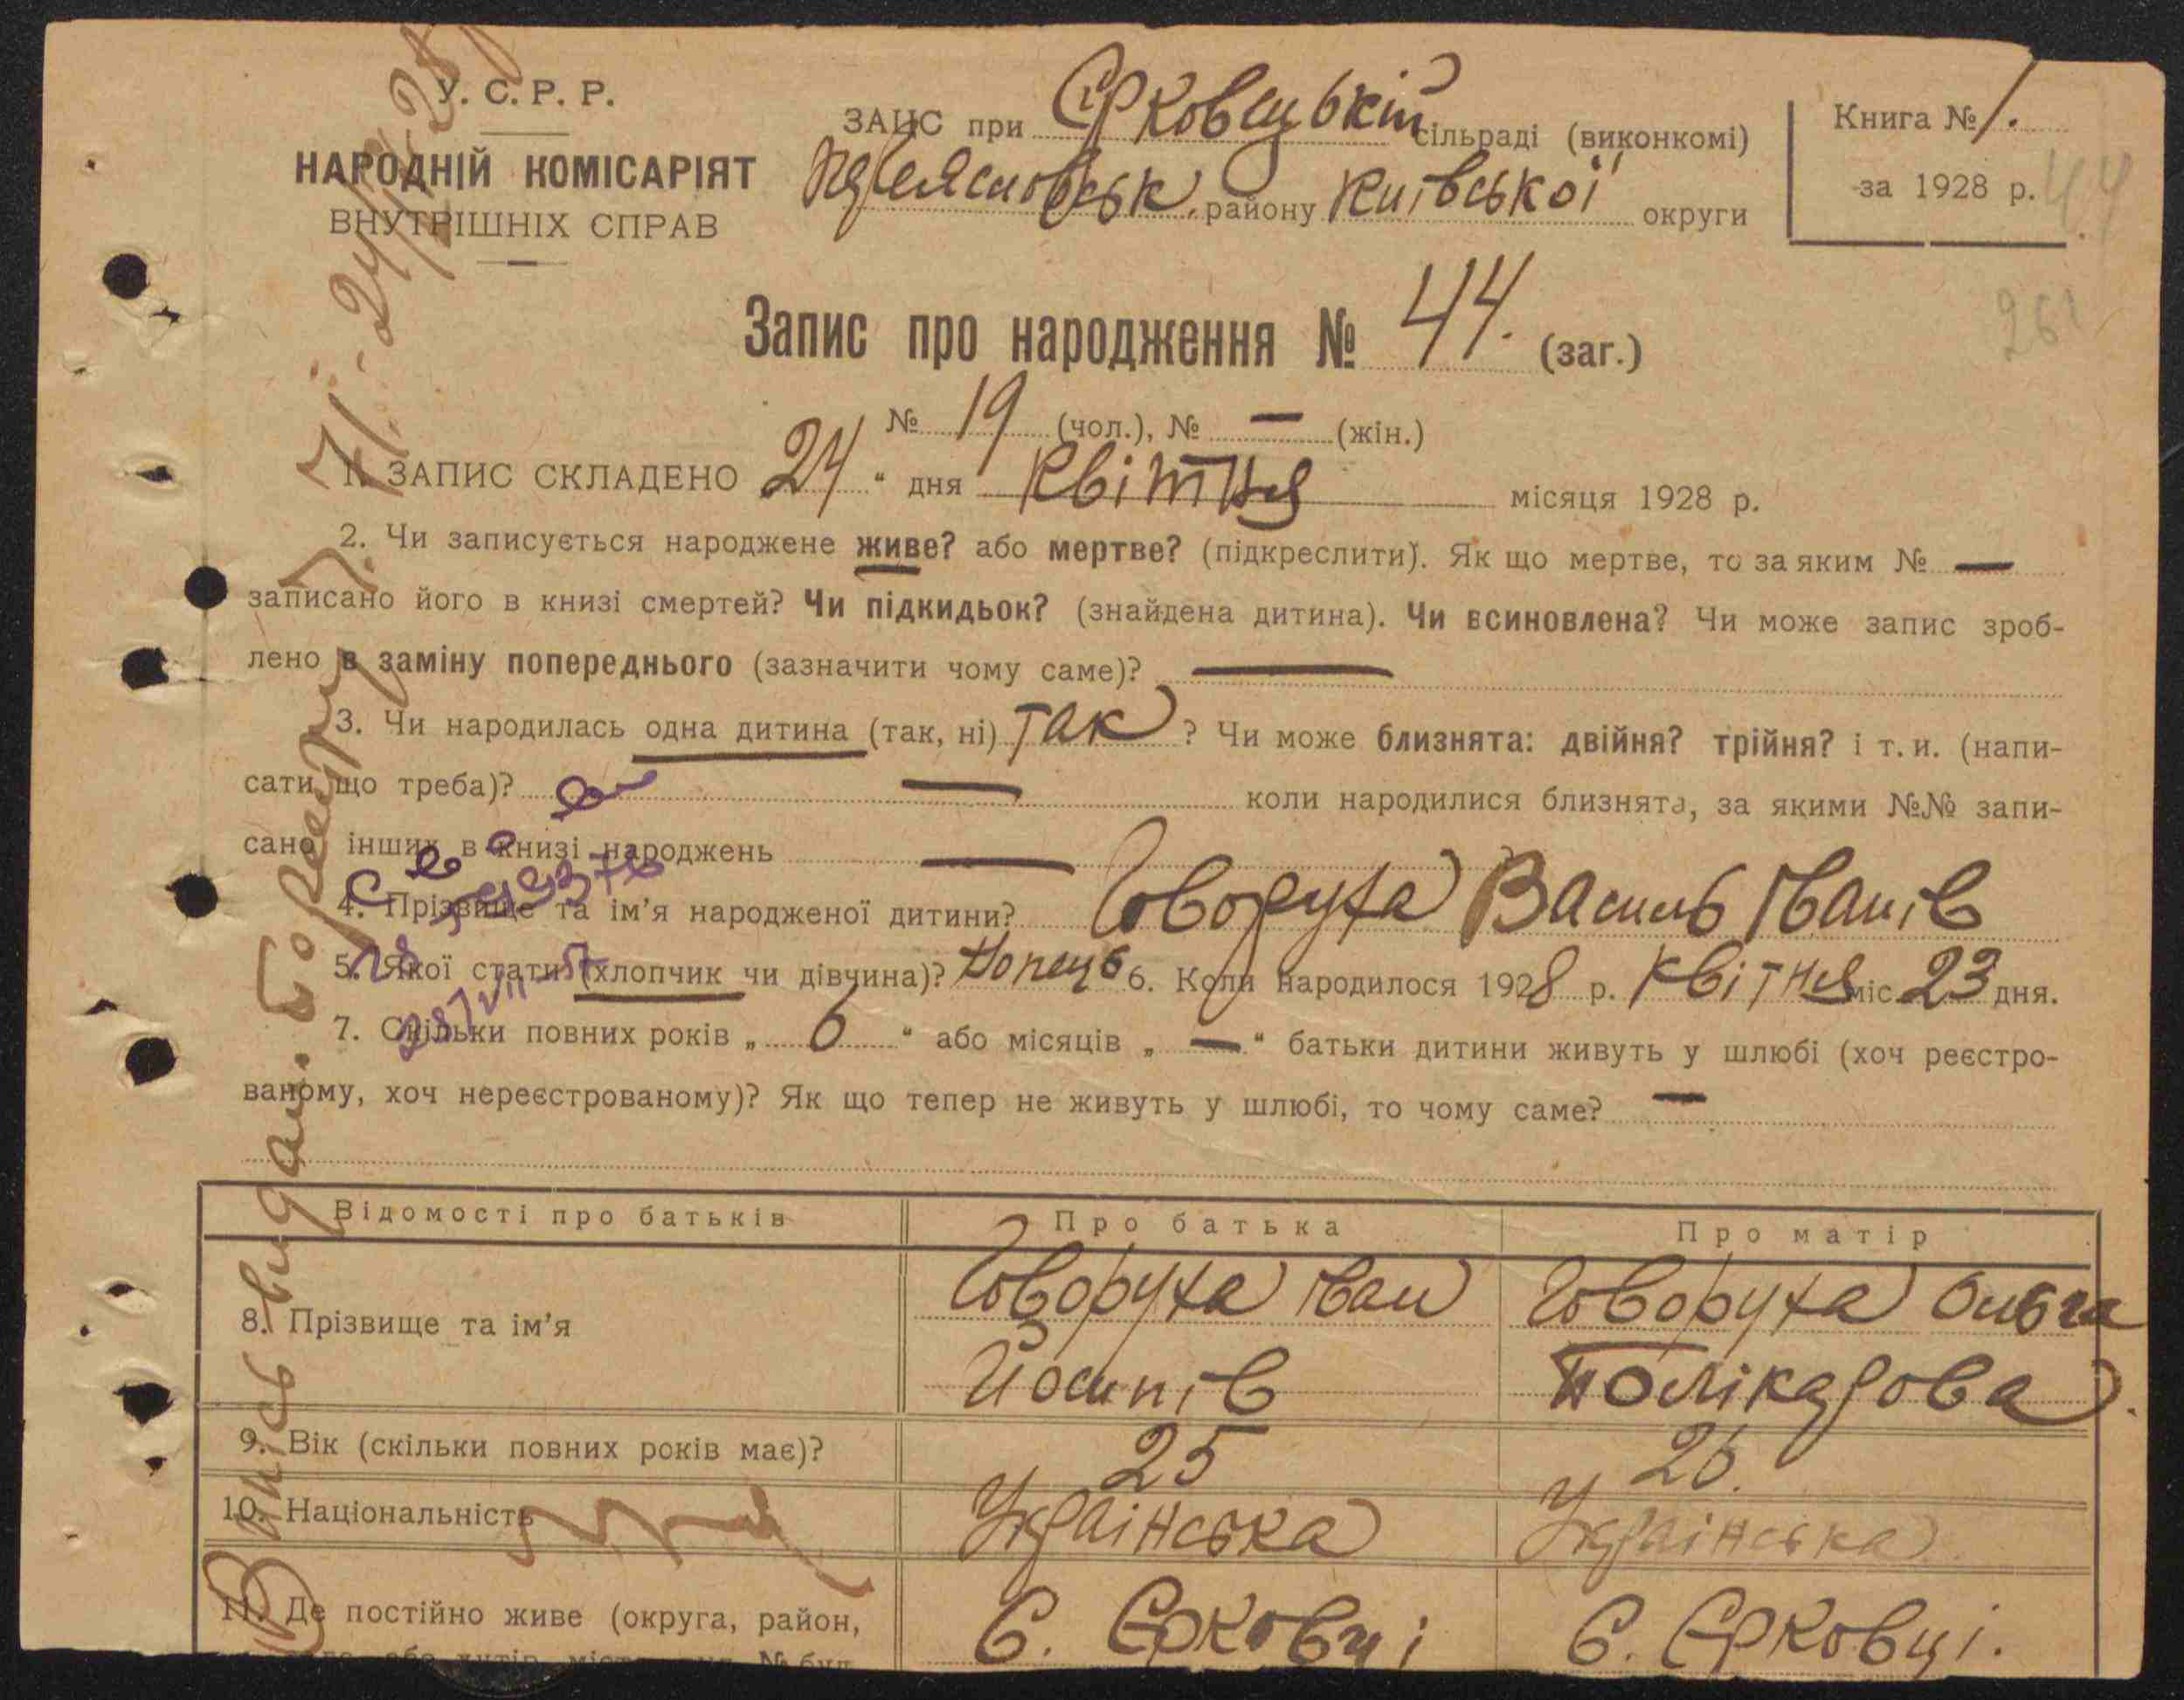 У. С. Р. Р.
НАРОДНІЙ КОМІСАРІЯТ
ВНУТРІШНІХ СПРАВ
ЗАЦС при Єрковецькій сільраді (виконкомі)
району Київської округи
Книга № 1.
за 1928 р. 44
Запис про народження № 44. (заг.)
261
№ 19 (чол.), № — (жін.)
1. ЗАПИС СКЛАДЕНО 24 " дня Квітня місяця 1928 р.
2. Чи записується народжене живе? або мертве? (підкреслити). Як що мертве, то за яким № —
записано його в книзі смертей? Чи підкидьок? (знайдена дитина). Чи всиновлена? Чи може запис зроб-
лено в заміну попереднього (зазначити чому саме)? —
3. Чи народилась одна дитина (так, ні) Так ? Чи може близнята: двійня? трійня? і т. и. (напи-
сати що треба)? — коли народилися близнята, за якими №№ запи-
сано інших в книзі народжень —
4. Прізвище та ім'я народженої дитини? Говоруха Василь Іванів
5. Якої стати (хлопчик чи дівчина)? Хлопець 6. Коли народилося 1928 р. Квітня міс. 23 дня.
7. Скільки повних років „ 6 " або місяців „ — " батьки дитини живуть у шлюбі (хоч реєстро-
ваному, хоч нереєстрованому)? Як що тепер не живуть у шлюбі, то чому саме? —
Відомості про батьків Про батька Про матір
8. Прізвище та ім'я Говоруха Іван Говоруха Ольга
Йосипів Полікарпова
9. Вік (скільки повних років має)? 25 26.
10. Національність Українська Українська
11. Де постійно живе (округа, район, С. Єрковці С. Єрковці.